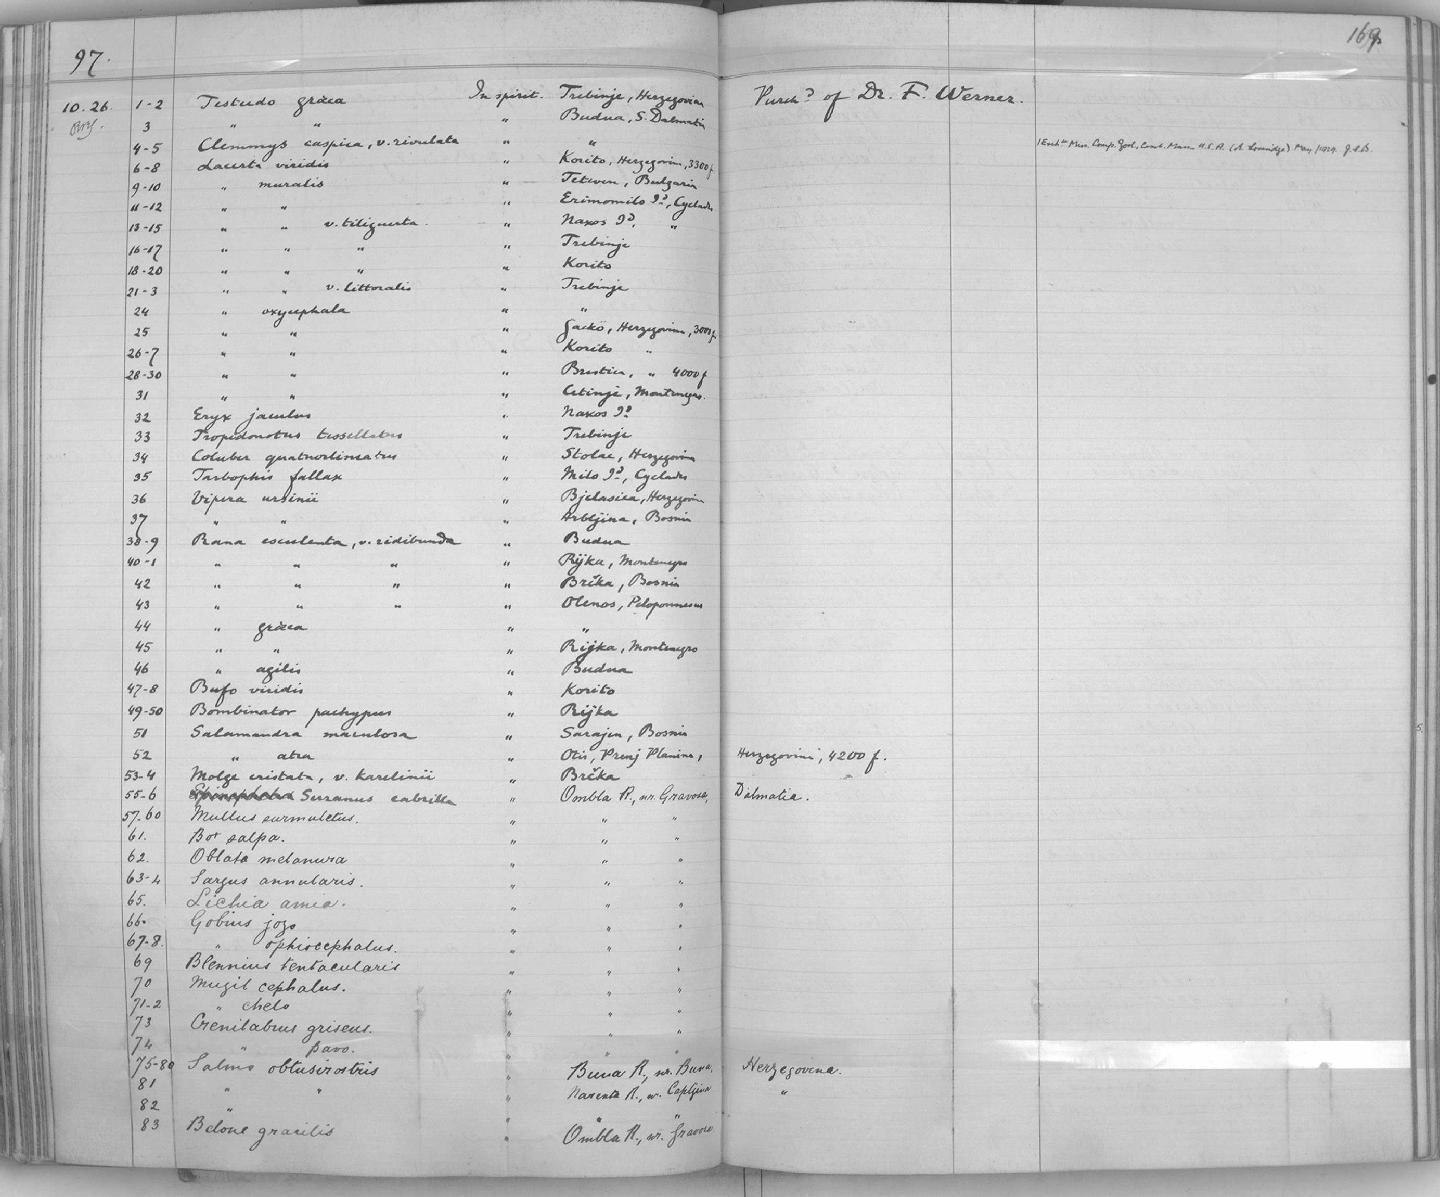 97.
169
10.26. 1-2 Testudo græca In spirit. Trebinje, Herzegovina Purchd of Dr. F. Werner.
3 " " " Budua, S. Dalmatia
4-5 Clemmys caspica, v. rivulata " " 1 Exch. Mus. Comp. Zool., Camb. Mass. U.S.A. (A. Loveridge) May 1929.
6-8 Lacerta viridis " Korito, Herzegovina, 3300 f
9-10 " muralis " Teteven, Bulgaria
11-12 " " " Erimomilo Id, Cyclades
13-15 " " v. tiliguerta. " Naxos Id, "
16-17 " " " " Trebinje
18-20 " " " " Korito
21-3 " " v. littoralis " Trebinje
24 " oxycephala " "
25 " " " Gacko, Herzegovina, 3000 f.
26-7 " " " Korito "
28-30 " " " " 4000 f
31 " " " Cetinje, Montenegro.
32 Eryx jaculus " Naxos Id
33 Tropidonotus tessellatus " Trebinje
34 Coluber quatuorlineatus " Stolac, Herzegovina
35 Tarbophis fallax " Milo Id, Cyclades
36 Vipera ursinii " Bjelasica, Herzegovina
37 " " " Bosnia
38-9 Rana esculenta, v. ridibunda " Budua
40-1 " " " " Rijka, Montenegro
42 " " " " Brčka, Bosnia
43 " " " " Olenos, Peloponnesus
44 " græca " "
45 " " " Rijka, Montenegro
46 " agilis " Budua
47-8 Bufo viridis " Korito
49-50 Bombinator pachypus " Rijka
51 Salamandra maculosa " Sarajevo, Bosnia
52 " atra " Otis, Prenj Planina, Herzegovina, 4200 f.
53-4 Molge cristata, v. karelinii " Brčka
55-6 Serranus cabrilla " Ombla R., nr. Gravosa, Dalmatia.
57-60 Mullus surmuletus. " " "
61. Box salpa. " " "
62. Oblata melanura " " "
63-4 Sargus annularis. " " "
65. Lichia amia. " " "
66. Gobius jozo " " "
67-8. " ophiocephalus. " " "
69 Blennius tentacularis " " "
70 Mugil cephalus. " " "
71-2 " chelo " " "
73 Crenilabrus griseus. " " "
74 " pavo. " " "
75-80 Salmo obtusirostris " Buna R., nr. Buna, Herzegovina.
81 " " " Narenta R., nr. Capljina "
82 " " " "
83 Belone gracilis " Ombla R., nr. Gravosa